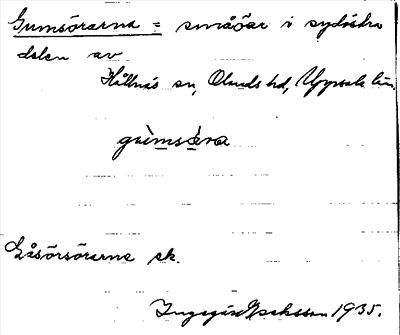 Gumsörarna = småöar i sydöstra
delen av
Hållnäs sn, Olands hd, Uppsala län.
gùmsǝ̀ra
Gåsörsörarna ek.
Ingegärd Isaksson 1935.